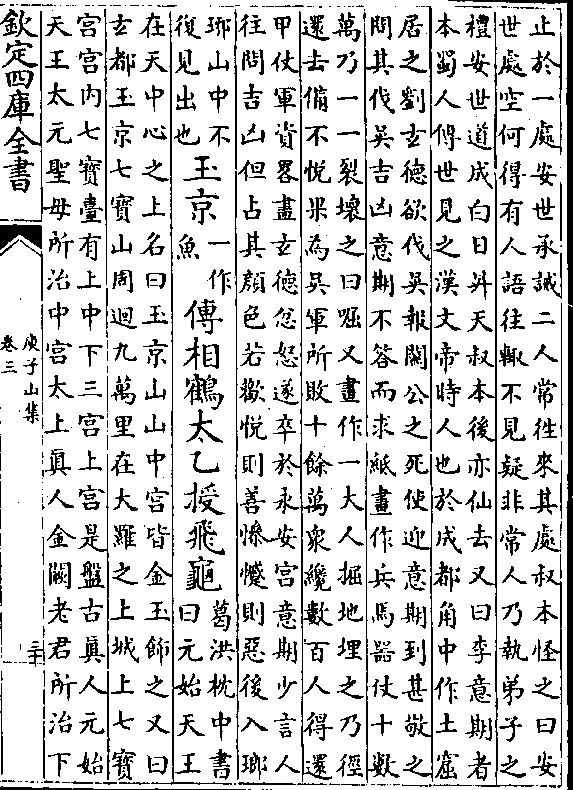 止於一處安世承誠二人常往來其處叔本怪之曰安
世處空何得有人語往輙不見疑非常人乃執弟子之
禮安世道成白日升天叔本後亦仙去又曰李意期者
本蜀人傳世見之漢文帝時人也於成都角中作土窟
居之劉玄德欲伐吳報關公之死使迎意期到甚敬之
問其伐吳吉凶意期不答而求紙畫作兵馬器仗十數
萬乃一一裂壞之曰咄又畫作一大人掘地埋之乃徑
還去備不悦果為吳軍所敗十餘萬衆纔數百人得還
甲仗軍資畧盡玄德忿怒遂卒於永安宮意期少言人
往問吉凶但占其顔色若歡悦則善慘慽則惡後入瑯
琊山中不
復見出也
玉京
一作
魚
傳相鶴太乙授飛龜
葛洪枕中書
曰元始天王
在天中心之上名曰玉京山山中宮皆金玉飾之又曰
玄都玉京七寶山周迴九萬里在大羅之上城上七寶
宮宮内七寶臺有上中下三宮上宮是盤古真人元始
天王太元聖母所治中宮太上真人金闕老君所治下
欽定四庫全書
庾子山集
卷三
三十